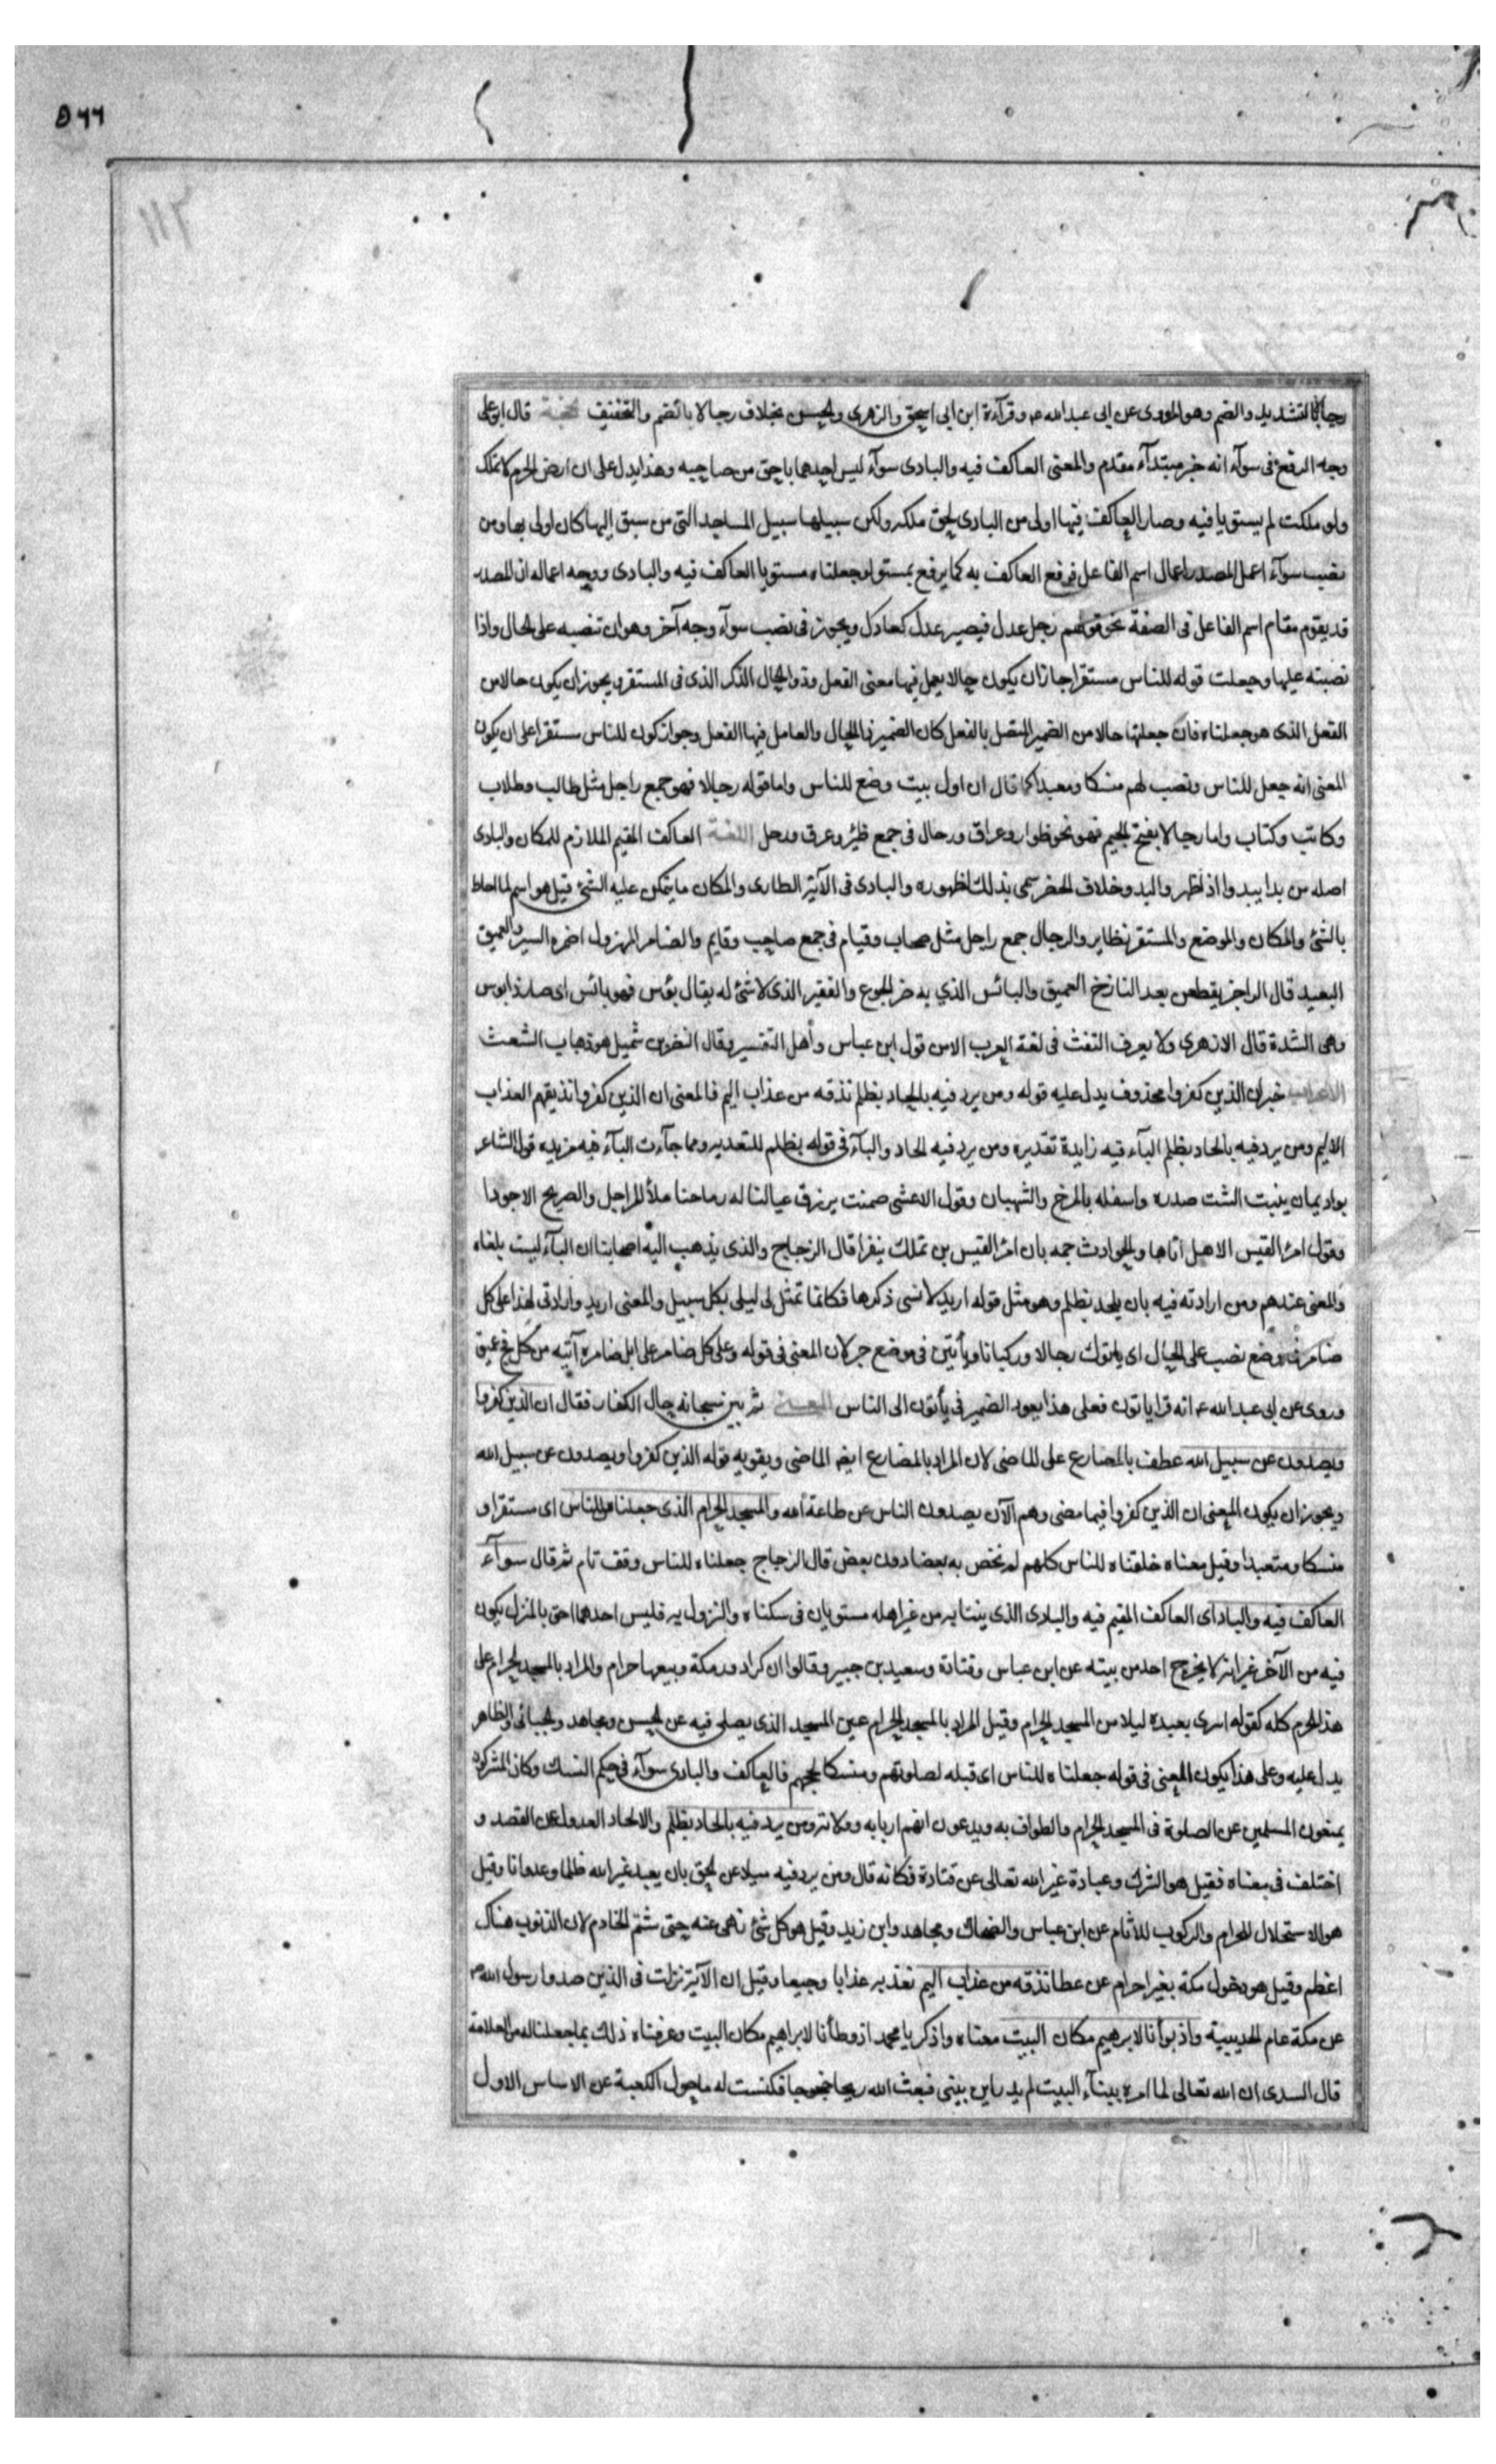 ٥٦٦
١١٢
رجالا بالتشديد والضم وهو المروى عن ابى عبد الله ع وقرآءة ابن ابى اسحق والزهرى والحسن بخلاف رجالا بالضم والتخفيف الحجة قال ابو على
وجه الرفع فى سوآء انه خبر مبتدآء مقدم والمعنى العاكف فيه والبادى سوآء ليس احدهما باحق من صاحبه وهذا يدل على ان ارض الحرم لا تملك
ولو ملكت لم يستويا فيه وصار العاكف فيها اولى من البادى لحق ملكه ولكن سبيلها سبيل المساجد التى من سبق اليها كان اولى بها ومن
نصب سوآء اعمل المصدر اعمال اسم الفاعل فرفع العاكف به كما يرفع بمستو لو جعلناه مستويا العاكف فيه والبادى ووجه اعماله ان المصدر
قد يقوم مقام اسم الفاعل فى الصفة نحو قولهم رجل عدل فيصير عدل كعادل ويجوز فى نصب سوآء وجه آخر وهو ان تنصبه على الحال واذا
نصبته عليها وجعلت قوله للناس مستقرا جاز ان يكون حالا يعمل فيها معنى الفعل وذو الحال الذكر الذى فى المستقر ويجوز ان يكون حالا من
الفعل الذى هو جعلناه فان جعلتها حالا من الضمير المتصل بالفعل كان الضمير ذا الحال والعامل فيها الفعل وجواز كون للناس مستقرا على ان يكون
المعنى انه جعل للناس ونصب لهم منسكا ومعبدا كما قال ان اول بيت وضع للناس واما قوله رجالا فهو جمع راجل مثل طالب وطلاب
وكاتب وكتاب واما رجالا بفتح الجيم فهو نحو ظوار وعراق ورحال فى جمع ظئر وعرق ورحل اللغة العاكف المقيم الملازم للمكان والبادى
اصله من بدا يبدوا اذ اظهر والبدو خلاف الحضر سمى بذلك لظهوره والبادى فى الآية الطارى والمكان ما يتمكن عليه الشئ قيل هو اسم لما احاط
بالشئ والمكان والموضع والمستقر نظاير والرجال جمع راجل مثل صحاب وقيام فى جمع صاحب وقايم والضامر المهزول اضمره السير والعميق
البعيد قال الراجز يقطعن بعد النازخ العميق والبائس الذي به ضر الجوع والفقير الذى لا شئ له يقال بؤس فهو بائس اى صار ذا بوس
وهى الشدة قال الازهرى ولا يعرف التفث فى لغة العرب الا من قول ابن عباس وأهل التفسير وقال النضر بن شميل هو ذهاب الشعث
الاعراب خبر ان الذين كفروا محذوف يدل عليه قوله ومن يرد فيه بالحاد بظلم نذقه من عذاب اليم فالمعنى ان الذين كفروا نذيقهم العذاب
الاليم ومن يرد فيه بالحاد بظلم البآء فيه زايدة تقديره ومن يرد فيه الحاد والبآء فى قوله بظلم للتعدية ومما جآءت البآء فيه مزيده قول الشاعر
بواد يمان ينبت الشت صدره واسفله بالمرخ والشهبان وقول الاعشى ضمنت برزق عيالنا له رماحنا ملأ المراجل والصريح الاجودا
وقول امرء القيس الا هل اتاها والحوادث جمه بان امرء القيس بن تملك بيقرا قال الزجاج والذى يذهب اليه اصحابنا ان البآء ليست بلغاه
والمعنى عندهم ومن ارادته فيه بان يلحد بظلم وهو مثل قوله اريد لانسى ذكرها فكانما تمثل لى ليلى بكل سبيل والمعنى اريد وارادتى لهذا على كل
ضامر فى موضع نصب على الحال اى ياتوك رجالا وركبانا ويأتين فى موضع جر لان المعنى فى قوله وعلى كل ضامر على ابل ضامره آتيه من كل فج عميق
وروى عن ابى عبد الله ع انه قرا ياتون فعلى هذا يعود الضمير فى يأتون الى الناس المعنى ثم بين سبحانه حال الكفار فقال ان الذين كفروا
ويصدون عن سبيل الله عطف بالمضارع على الماضى لان المراد بالمضارع ايضا الماضى ويقويه قوله الذين كفروا ويصدون عن سبيل الله
ويجوز ان يكون المعنى ان الذين كفروا فيما مضى وهم الآن يصدون الناس عن طاعة الله والمسجد الحرام الذى جعلناه للناس اى مستقرا و
منسكا ومتعبدا وقيل معناه خلقناه للناس كلهم لم نخص به بعضا دون بعض قال الزجاج جعلناه للناس وقف تام ثم قال سوآء
العاكف فيه والباد اى العاكف المقيم فيه والبادى الذى ينتابه من غير اهله مستويان فى سكناه والنزول به فليس احدهما احق بالمنزل يكون
فيه من الآخر غير انه لا يخرج احد من بيته عن ابن عباس وقتادة وسعيد بن جبير وقالوا ان كراء دور مكة وبيعها حرام والمراد بالمسجد الحرام على
هذا الحرم كله كقوله اسرى بعبده ليلا من المسجد الحرام وقيل المراد بالمسجد الحرام عين المسجد الذى يصلى فيه عن الحسن ومجاهد والجبائى والظاهر
يدل عليه وعلى هذا يكون المعنى فى قوله جعلناه للناس اى قبله لصلوتهم ومنسكا لحجهم فالعاكف والبادى سوآء فى حكم النسك وكان المشركون
يمنعون المسلمين عن الصلوة فى المسجد الحرام والطواف به ويدعون انهم اربابه وولاته ومن يرد فيه بالحاد بظلم والالحاد العدول عن القصد و
اختلف فى معناه فقيل هو الشرك وعبادة غير الله تعالى عن قتادة فكانه قال ومن يرد فيه ميلا عن الحق بان يعبد غير الله ظلما وعدوانا وقيل
هو الاستحلال للحرام والركوب للآثام عن ابن عباس والضحاك ومجاهد وابن زيد وقيل هو كل شئ نهى عنه حتى شتم الخادم لان الذنوب هناك
اعظم وقيل هو دخول مكة بغير احرام عن عطا نذقه من عذاب اليم نعذبه عذابا وجيعا وقيل ان الآية نزلت فى الذين صدوا رسول الله ص
عن مكة عام الحديبية واذ بوأنا لابرهيم مكان البيت معناه واذكر يا محمد اذ وطأنا لابراهيم مكان البيت وعرفناه ذلك بما جعلنا له من العلامة
قال السدى ان الله تعالى لما امره ببنآء البيت لم يدر اين يبنى فبعث الله ريحا خجوجا فكنست له ما حول الكعبة عن الاساس الاول